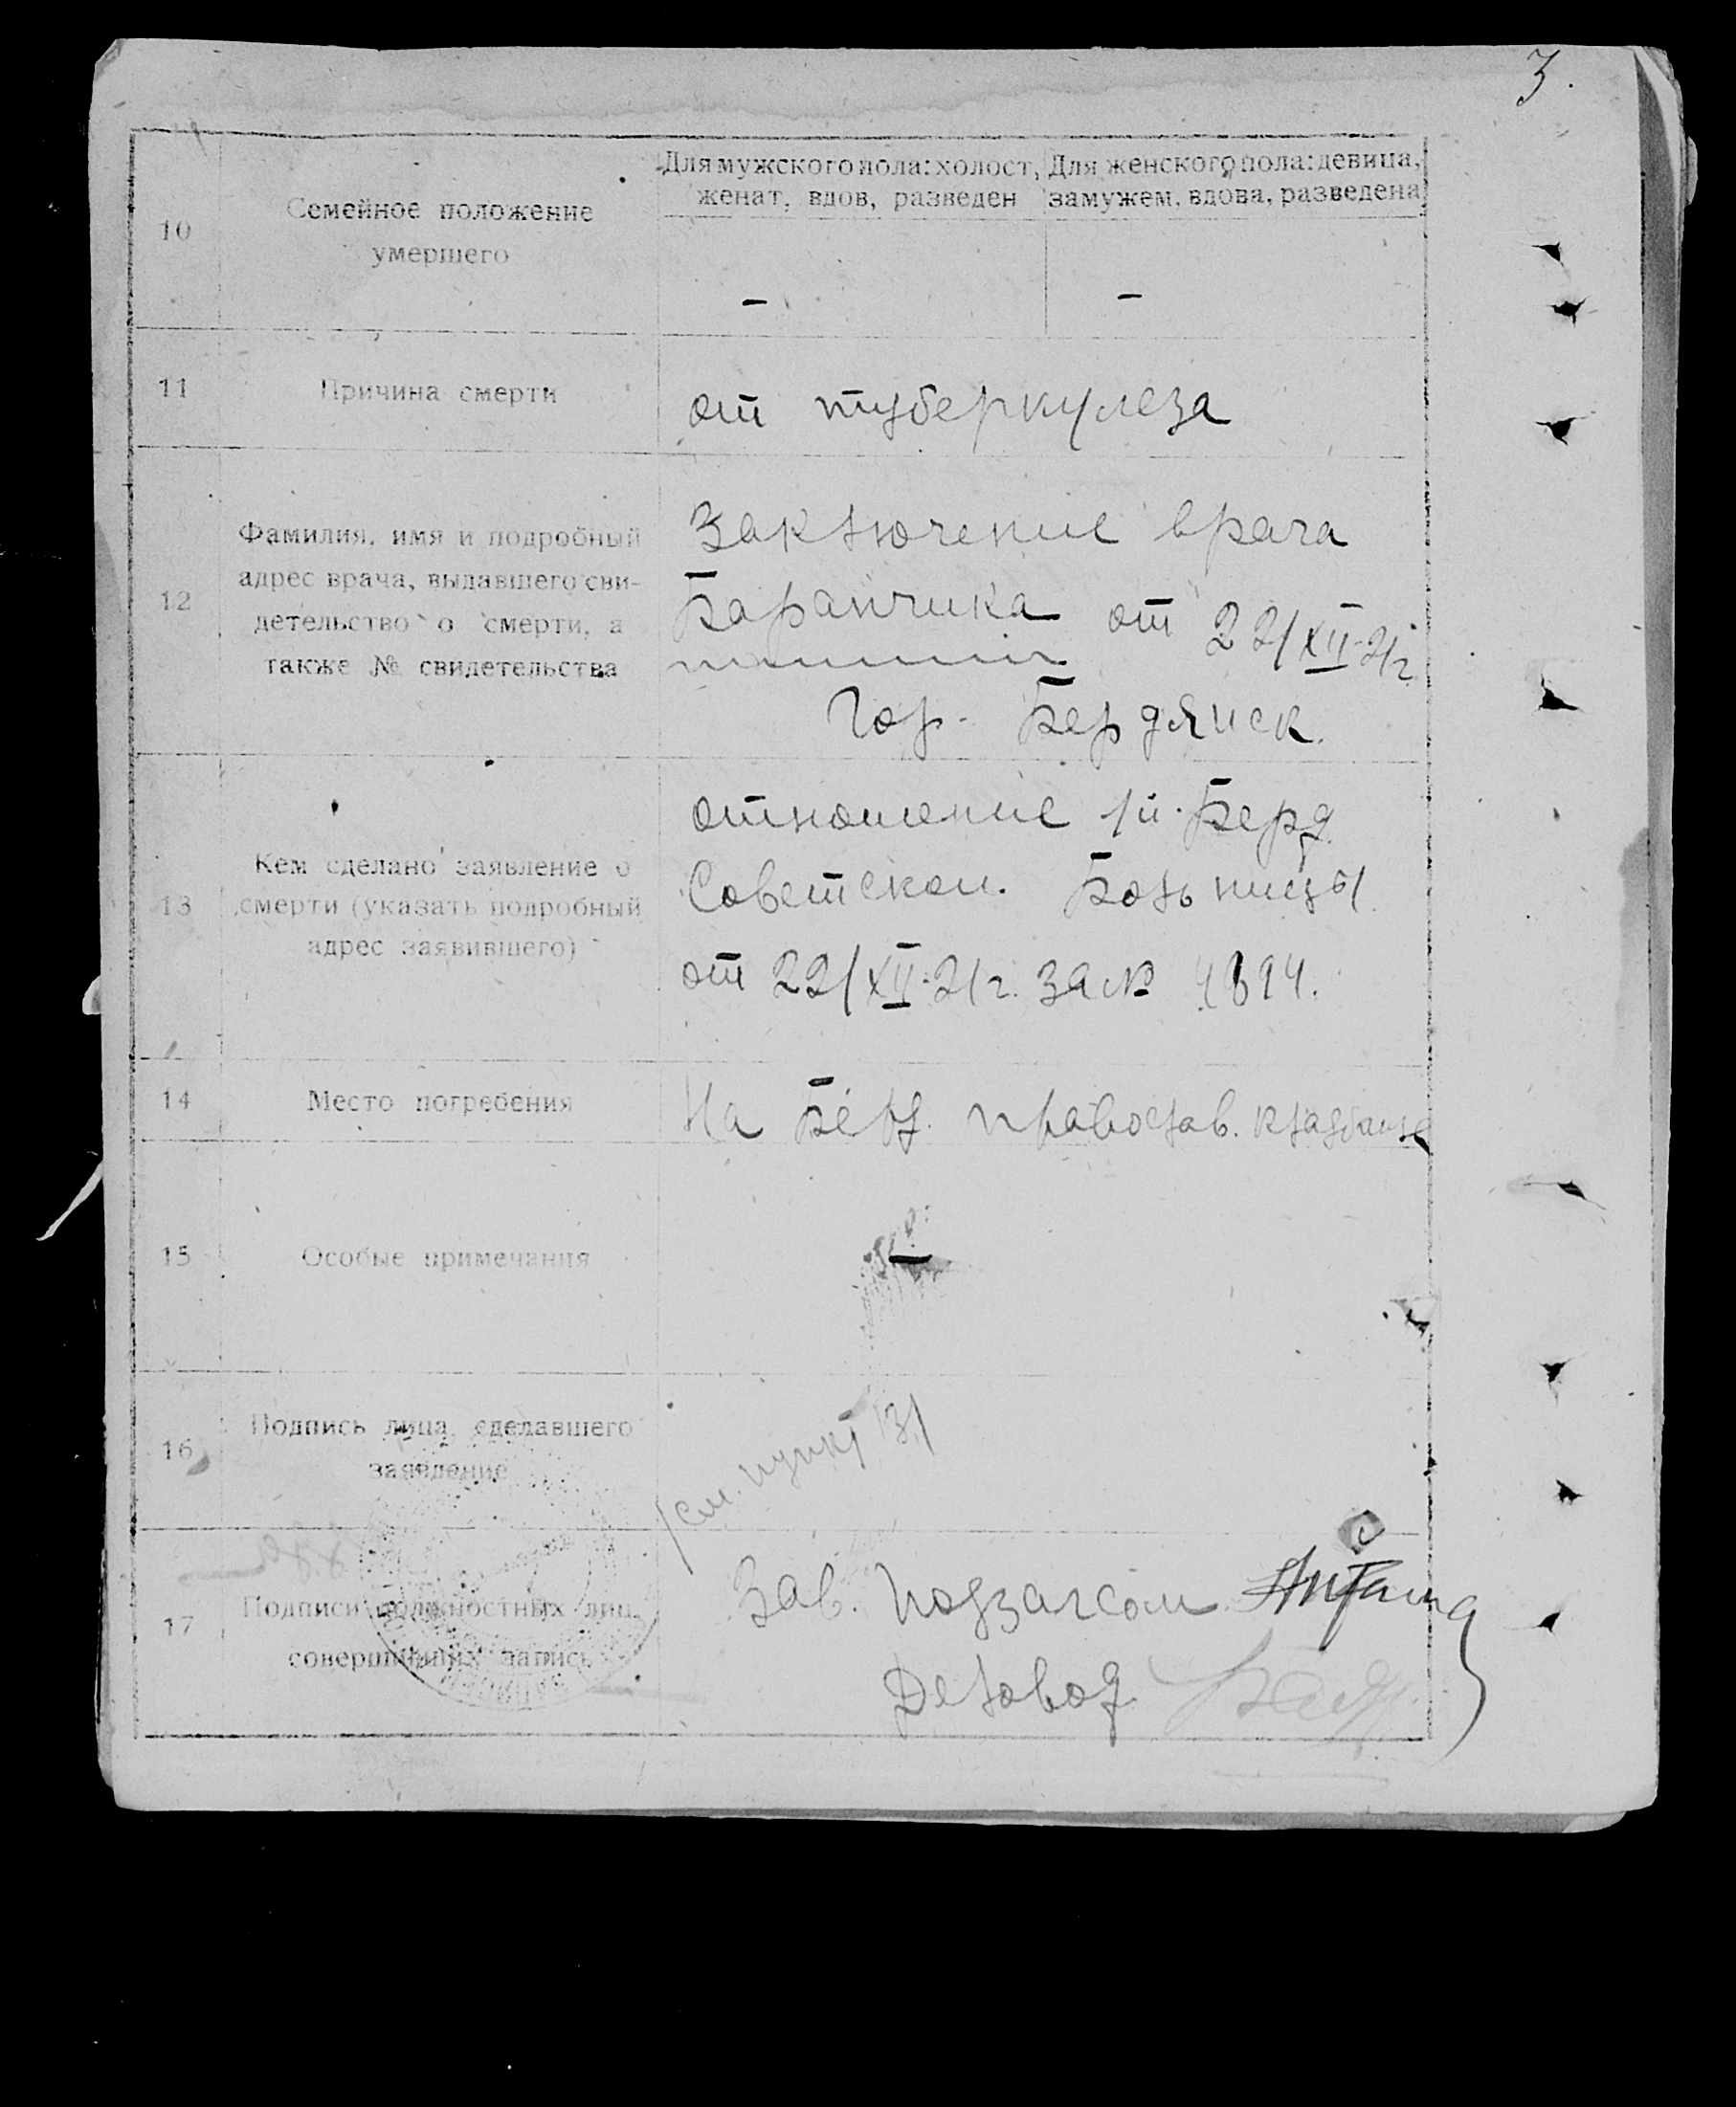 3.
10
Семейное положение
умершего
Для мужского пола: холост,
женат, вдов, разведен
Для женского пола: девица,
замужем, вдова, разведена
–
–
11
Причина смерти
от туберкулеза
12
Фамилия, имя и подробный
адрес врача, выдавшего сви-
детельство о смерти, а
также № свидетельства
Заключение врача
Баранчика от 22/XII-21г
Гор. Бердянск.
13
Кем сделано заявление о
смерти (указать подробный
адрес заявившего)
отношение 1й. Берд.
Советской. Больницы
от 22/XII-21г. за №
14
Место погребения
На Берд. православ. кладбище
15
Особые примечания
–
16
Подпись лица, сделавшего
заявление
/см. пункт 13/
17
Подписи должностных лиц,
совершивших запись
Зав. Подзагсом
Деловод